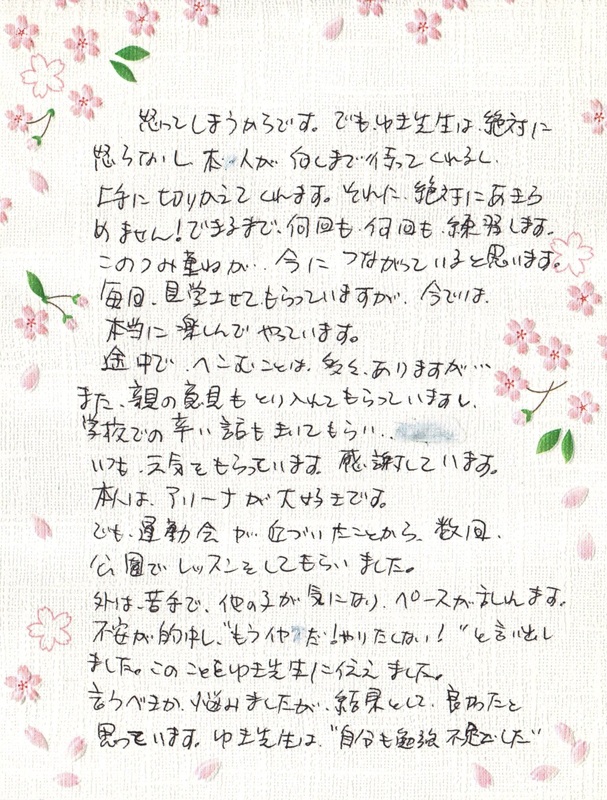 怒ってしまうからです。でも、ゆき先生は、絶対に
怒らないし、本人が何しまで待ってくれるし、
上手に切りかえてくれます。それに、絶対にあきら
めません!できるまで、何回も、何回も、練習します。
このつみ重ねが、今につながっていると思います。
毎回、見学させてもらっていますが、今では、
本当に楽しんでやっています。
途中で、へこむことは、多々、ありますが…
また、親の意見もとり入れてもらっていますし、
学校での辛い話もきいてもらい、
いつも、元気をもらっています。感謝しています。
本人は、アリーナが大好きです。
でも、運動会が近づいたことから、数回、
公園でレッスンをしてもらいました。
外は、苦手で、他の子が気になり、ペースが乱れます。
不安が的中し、"もうイヤだ!やりたくない!"と言い出し
ました。このことをゆき先生に伝えました。
言うべきか、悩みましたが、結果として、良かったと
思っています。ゆき先生は、"自分も勉強不足でした"